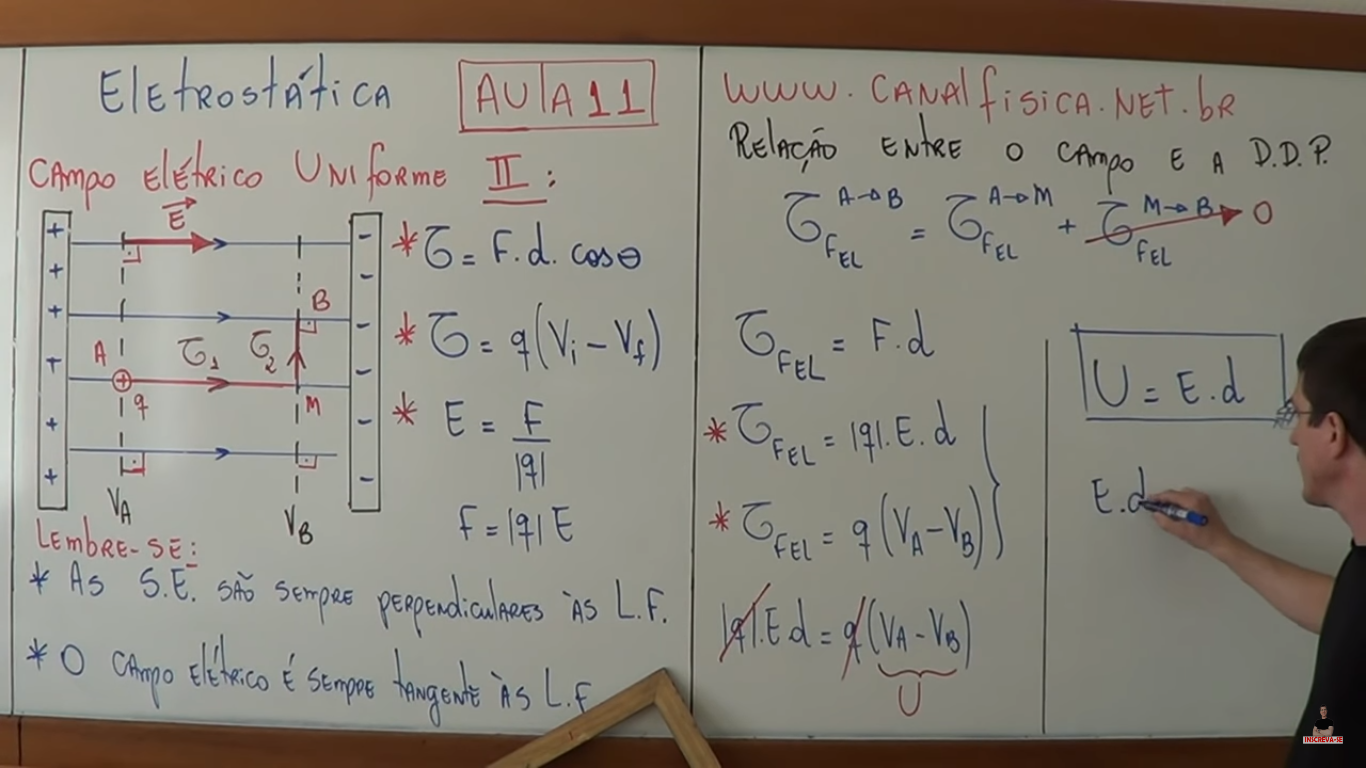 Eletrostática
AULA 11
CAMPO ELÉTRICO UNIFORME II:
E
+ -
+ -
+ -
+ -
+ -
+ -
A
B
M
q
τ1
τ2
VA
VB
* τ = F.d.cosθ
* τ = q(Vi - Vf)
* E = F/|q|
F = |q|E
LEMBRE-SE:
* AS S.E. SÃO SEMPRE PERPENDICULARES ÀS L.F.
* O CAMPO ELÉTRICO É SEMPRE TANGENTE ÀS L.F
WWW.CANALfISICA.NET.bR
RELAÇÃO ENTRE O CAMPO E A D.D.P.
τ FEL A→B = τ FEL A→M + τ FEL M→B 0
τ FEL = F.d
* τ FEL = |q|.E.d
* τ FEL = q(VA - VB)
|q|.E.d = q(VA - VB)
U
U = E.d
E.d
INSCREVA-SE